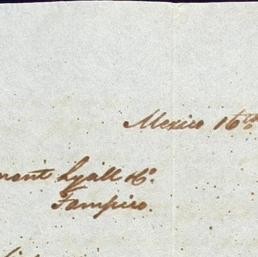 Mexico 16th
mont Lyall &Co.
Tampico.